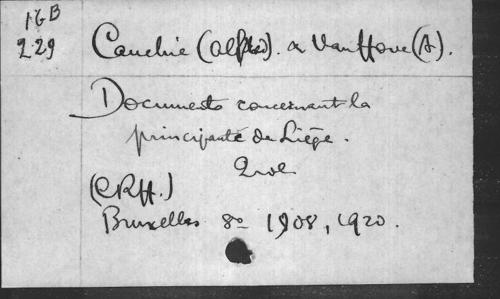 IGB
229
Cauchie (Alfred). & Van Hove (A).
Documents concernant la
principauté de Liège.
2 vol.
(CRH.)
Bruxelles 8º 1908, 1920.